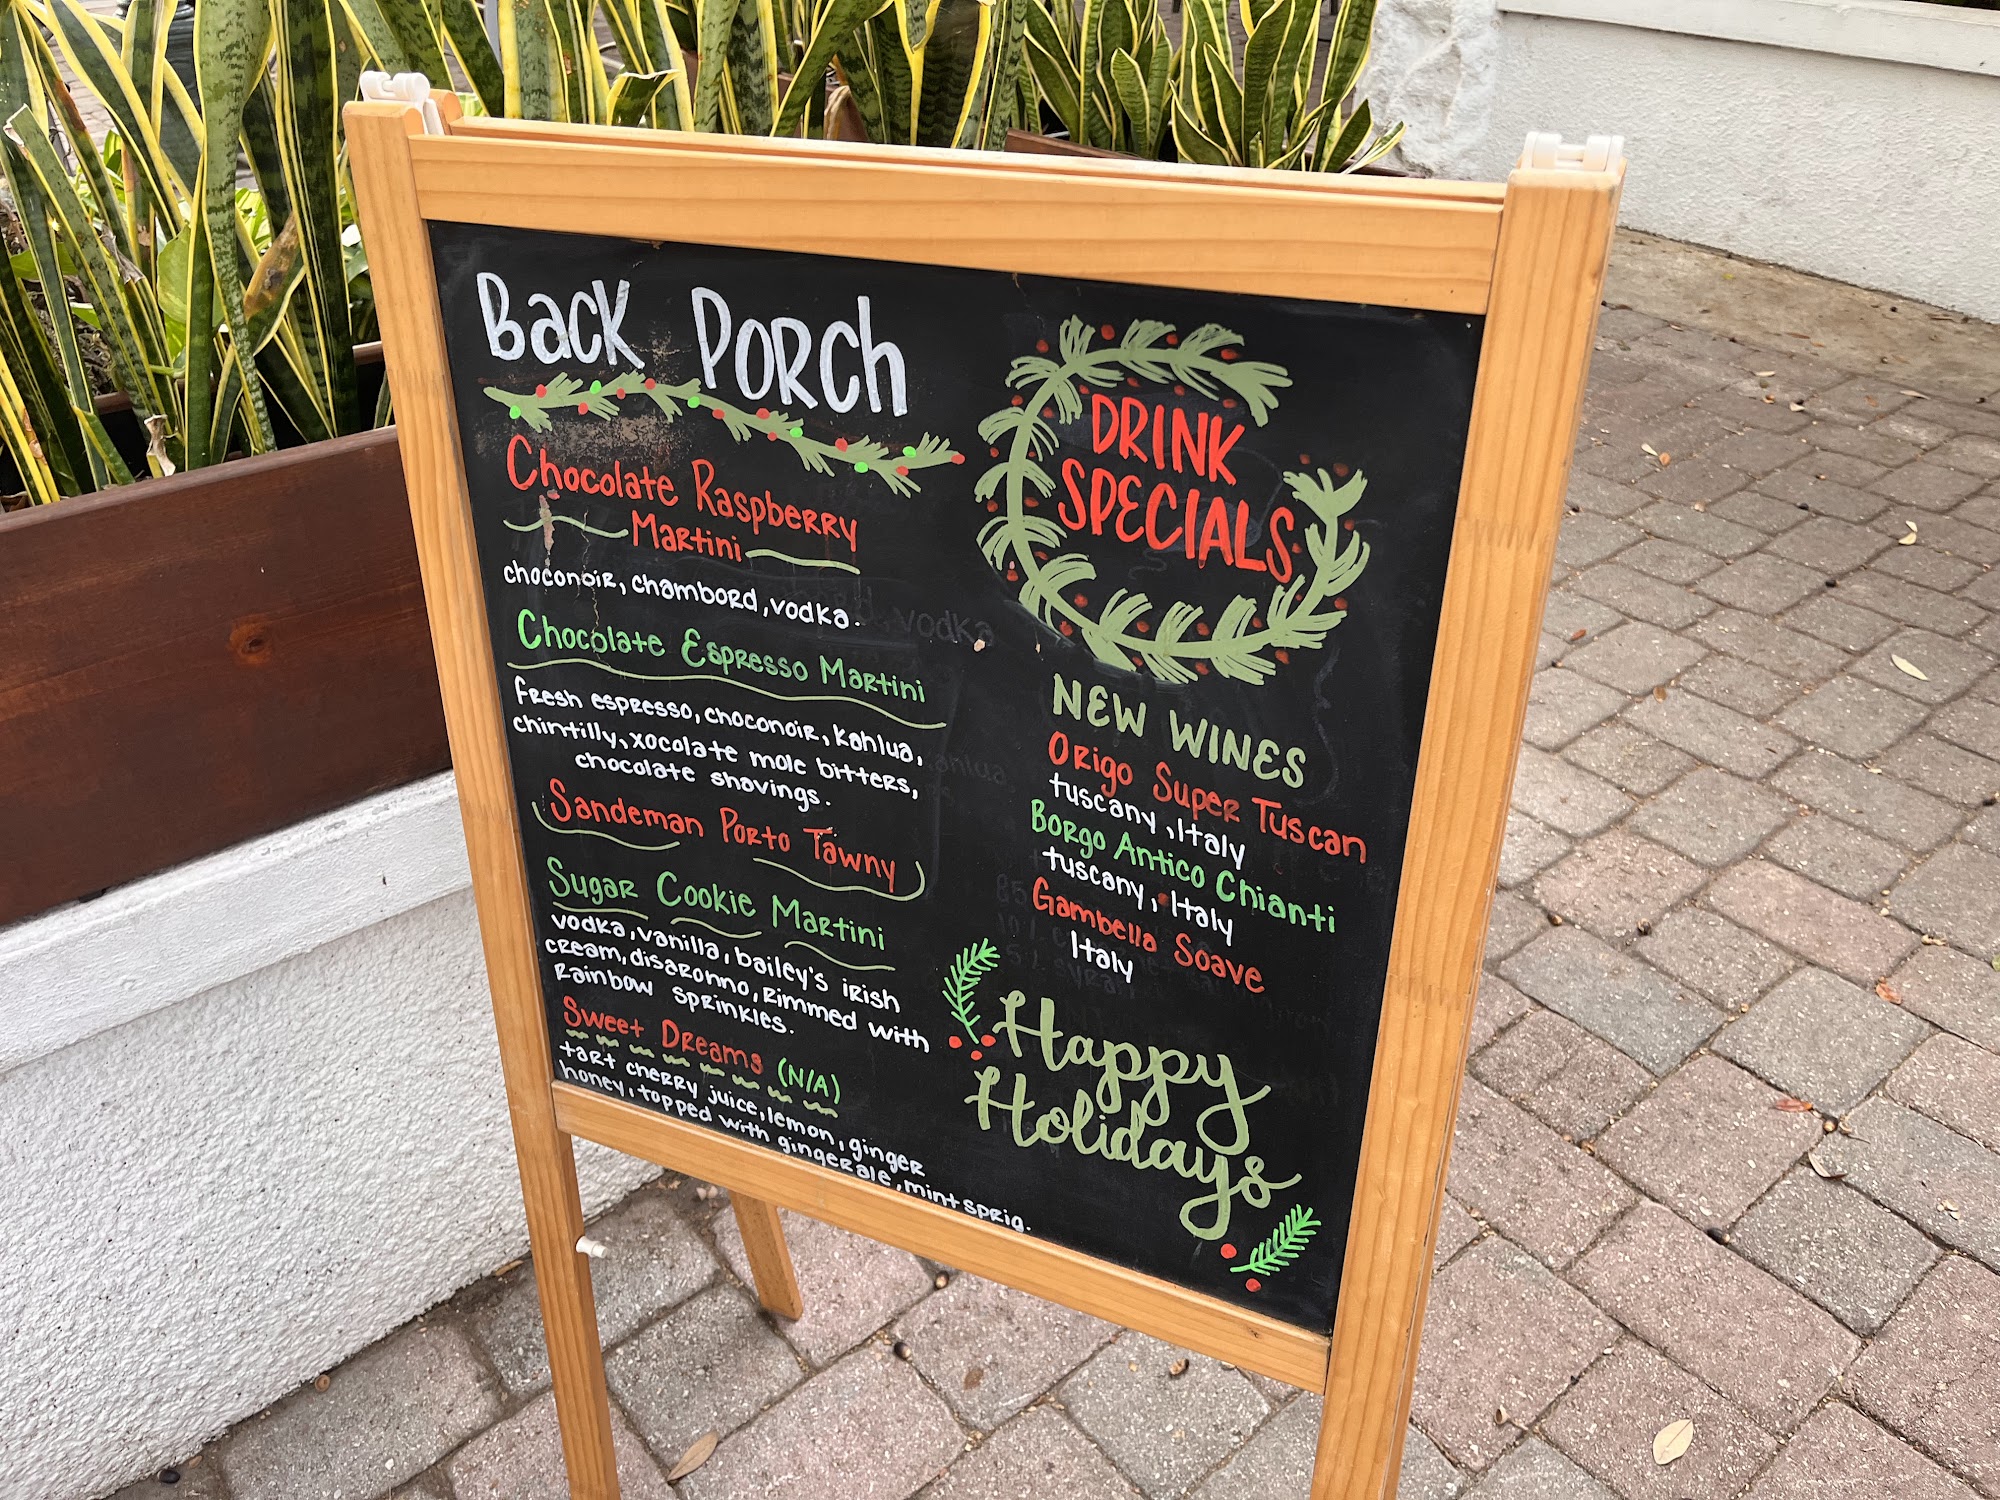 Back Porch
Chocolate Raspberry
Martini
choconoir, chambord, vodka.
Chocolate Espresso Martini
fresh espresso, choconoir, kahlua,
chintilly, xocolate mole bitters,
chocolate shavings.
Sandeman Porto Tawny
Sugar Cookie Martini
vodka, vanilla, bailey's irish
cream, disaronno, rimmed with
rainbow sprinkles.
Sweet Dreams (N/A)
tart cherry juice, lemon, ginger
honey, topped with gingerale, mint sprig.
DRINK
SPECIALS
NEW WINES
Origo Super Tuscan
tuscany, Italy
Borgo Antico Chianti
tuscany, Italy
Gambella Soave
Italy
Happy
Holidays